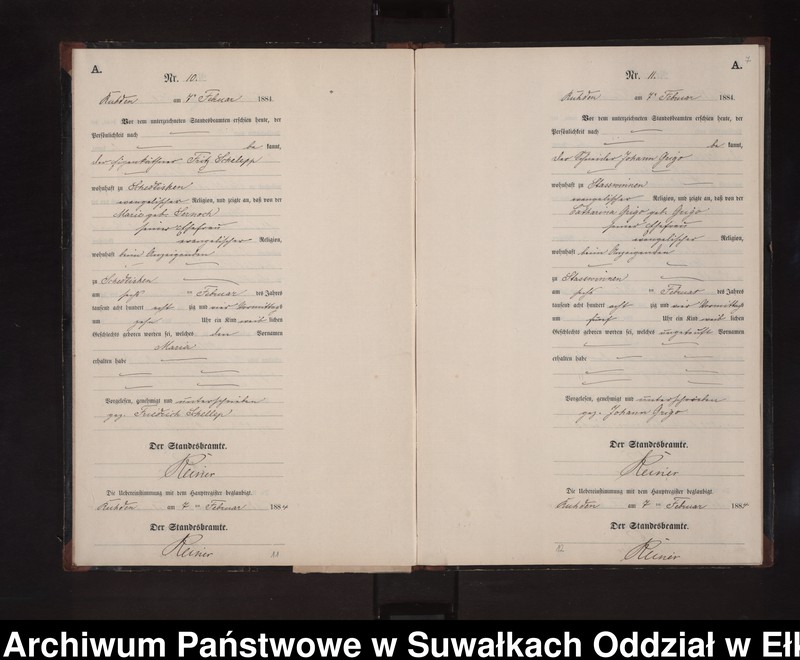 A.
Nr. 10.
Kuhden am 7ᵗ Februar 1884
Vor dem unterzeichneten Standesbeamten erschien heute, der
Persönlichkeit nach
be kannt,
der Eigenkäthner Fritz Schelepp
wohnhaft zu Schedlisken
evangelischer Religion, und zeigte an, daß von der
Marie geb. Sernoch
seiner Ehefrau
evangelischer Religion,
wohnhaft beim Anzeigenden
zu Schedlisken
am sechsten Februar des Jahres
tausend acht hundert acht zig und vier Vormittags
um zehn Uhr ein Kind weib lichen
Geschlechts geboren worden sei, welches den Vornamen
Maria
erhalten habe
Vorgelesen, genehmigt und unterschrieben
gez. Friedrich Schillep
Der Standesbeamte.
Reiner
Die Uebereinstimmung mit dem Hauptregister beglaubigt.
Kuhden am 7ᵗᵉⁿ Februar 1884
Der Standesbeamte.
Reiner
A.
Nr. 11.
Kuhden am 7ᵗ Februar 1884.
Vor dem unterzeichneten Standesbeamten erschien heute, der
Persönlichkeit nach
be kannt,
der Schneider Johann Grigo
wohnhaft zu Staswinnen
evangelischer Religion, und zeigte an, daß von der
Catharina Grigo geb. Grigo
seiner Ehefrau
evangelischer Religion,
wohnhaft beim Anzeigenden
zu Staswinnen
am sechs Februar des Jahres
tausend acht hundert acht zig und vier Vormittags
um fünf Uhr ein Kind weib lichen
Geschlechts geboren worden sei, welches ungetauft Vornamen
erhalten habe
Vorgelesen, genehmigt und unterschrieben
gez. Johann Grigo
Der Standesbeamte.
Reiner
Die Uebereinstimmung mit dem Hauptregister beglaubigt.
Kuhden am 7ᵗᵉⁿ Februar 1884
Der Standesbeamte.
Reiner
Archiwum Państwowe w Suwałkach Oddział w Ełk